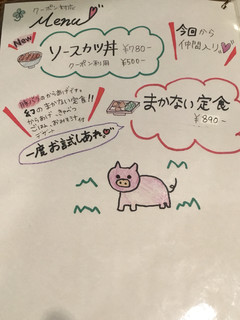 クーポン対応
Menu
New
ソースカツ丼 ¥780-
クーポン利用 ¥500-
今回から
仲間入り
まかない定食
¥890-
のまかない定食!!
からあげ
ごはん、おみそ汁
一度お試しあれ